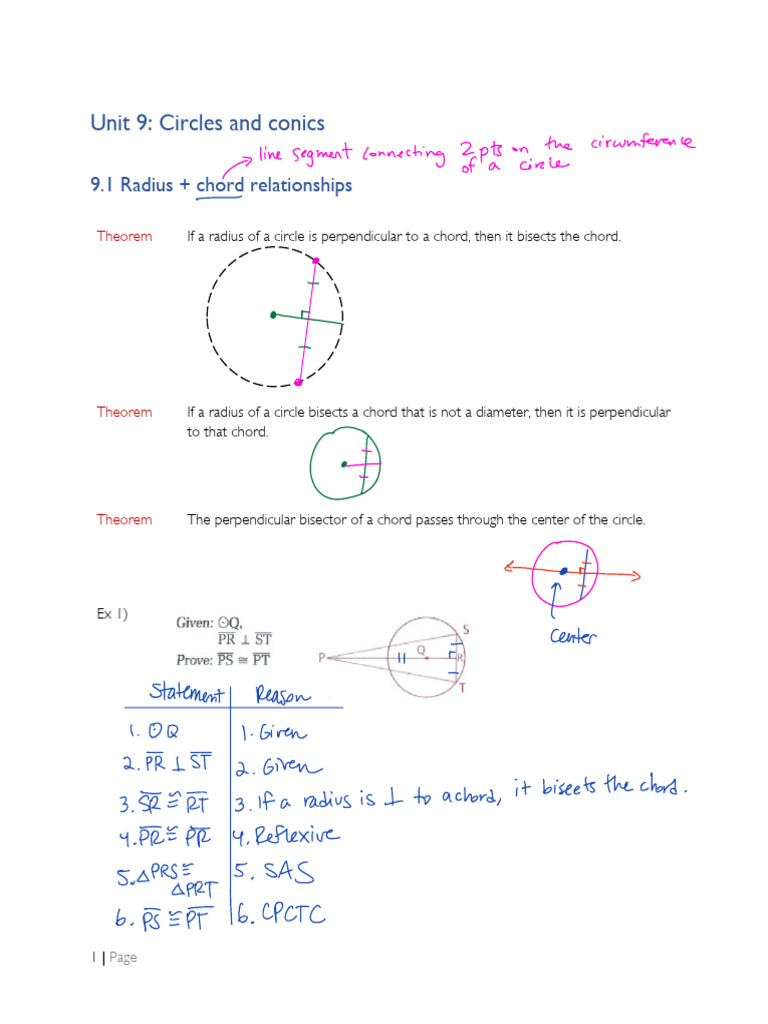 Unit 9: Circles and conics
line segment connecting 2 pts on the circumference
of a circle
9.1 Radius + chord relationships
Theorem If a radius of a circle is perpendicular to a chord, then it bisects the chord.
Theorem If a radius of a circle bisects a chord that is not a diameter, then it is perpendicular
to that chord.
Theorem The perpendicular bisector of a chord passes through the center of the circle.
center
Ex 1)
Given: ⊙Q,
P̅R̅ ⊥ S̅T̅
Prove: P̅S̅ ≅ P̅T̅
P Q R S T
Statement Reason
1. ⊙Q 1. Given
2. P̅R̅ ⊥ S̅T̅ 2. Given
3. S̅R̅ ≅ R̅T̅ 3. If a radius is ⊥ to a chord, it bisects the chord.
4. P̅R̅ ≅ P̅R̅ 4. Reflexive
5. △PRS ≅ 5. SAS
△PRT
6. P̅S̅ ≅ P̅T̅ 6. CPCTC
1 | Page